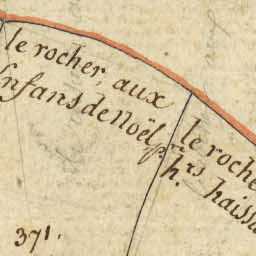 le rocher, aux
Enfans de Noël
le roche
h.rs haissa
371.